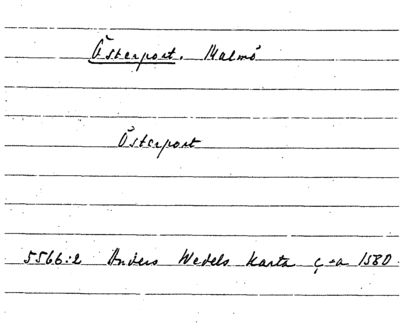 Österport. Malmö
Österport
5566:2 Anders Wedels karta c:a 1580.